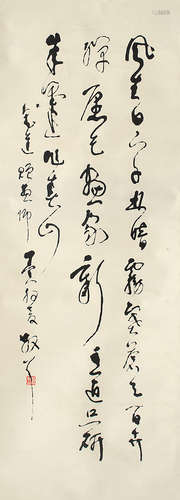 風生白下千林暗霧塞蒼天百卉
殫願乞畫家新意匠只研
朱墨作春山
魯迅贈畫師